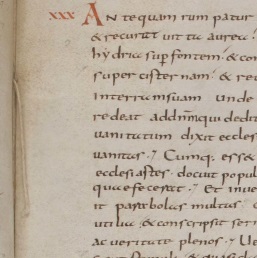 xxx Antequam rumpatur
& recurrat uitta aurea
hydria sup fontem & con
super cisternam & re
In terram suam unde
redeat ad dnm qui dedit
uanitatum dixit eccles
uanitas Cumq; ess&
ecclesiastes docuit popul
que fecerat Et inue
it parabolas multas
utilia & conscripsit ser
ac ueritate plenos Ue